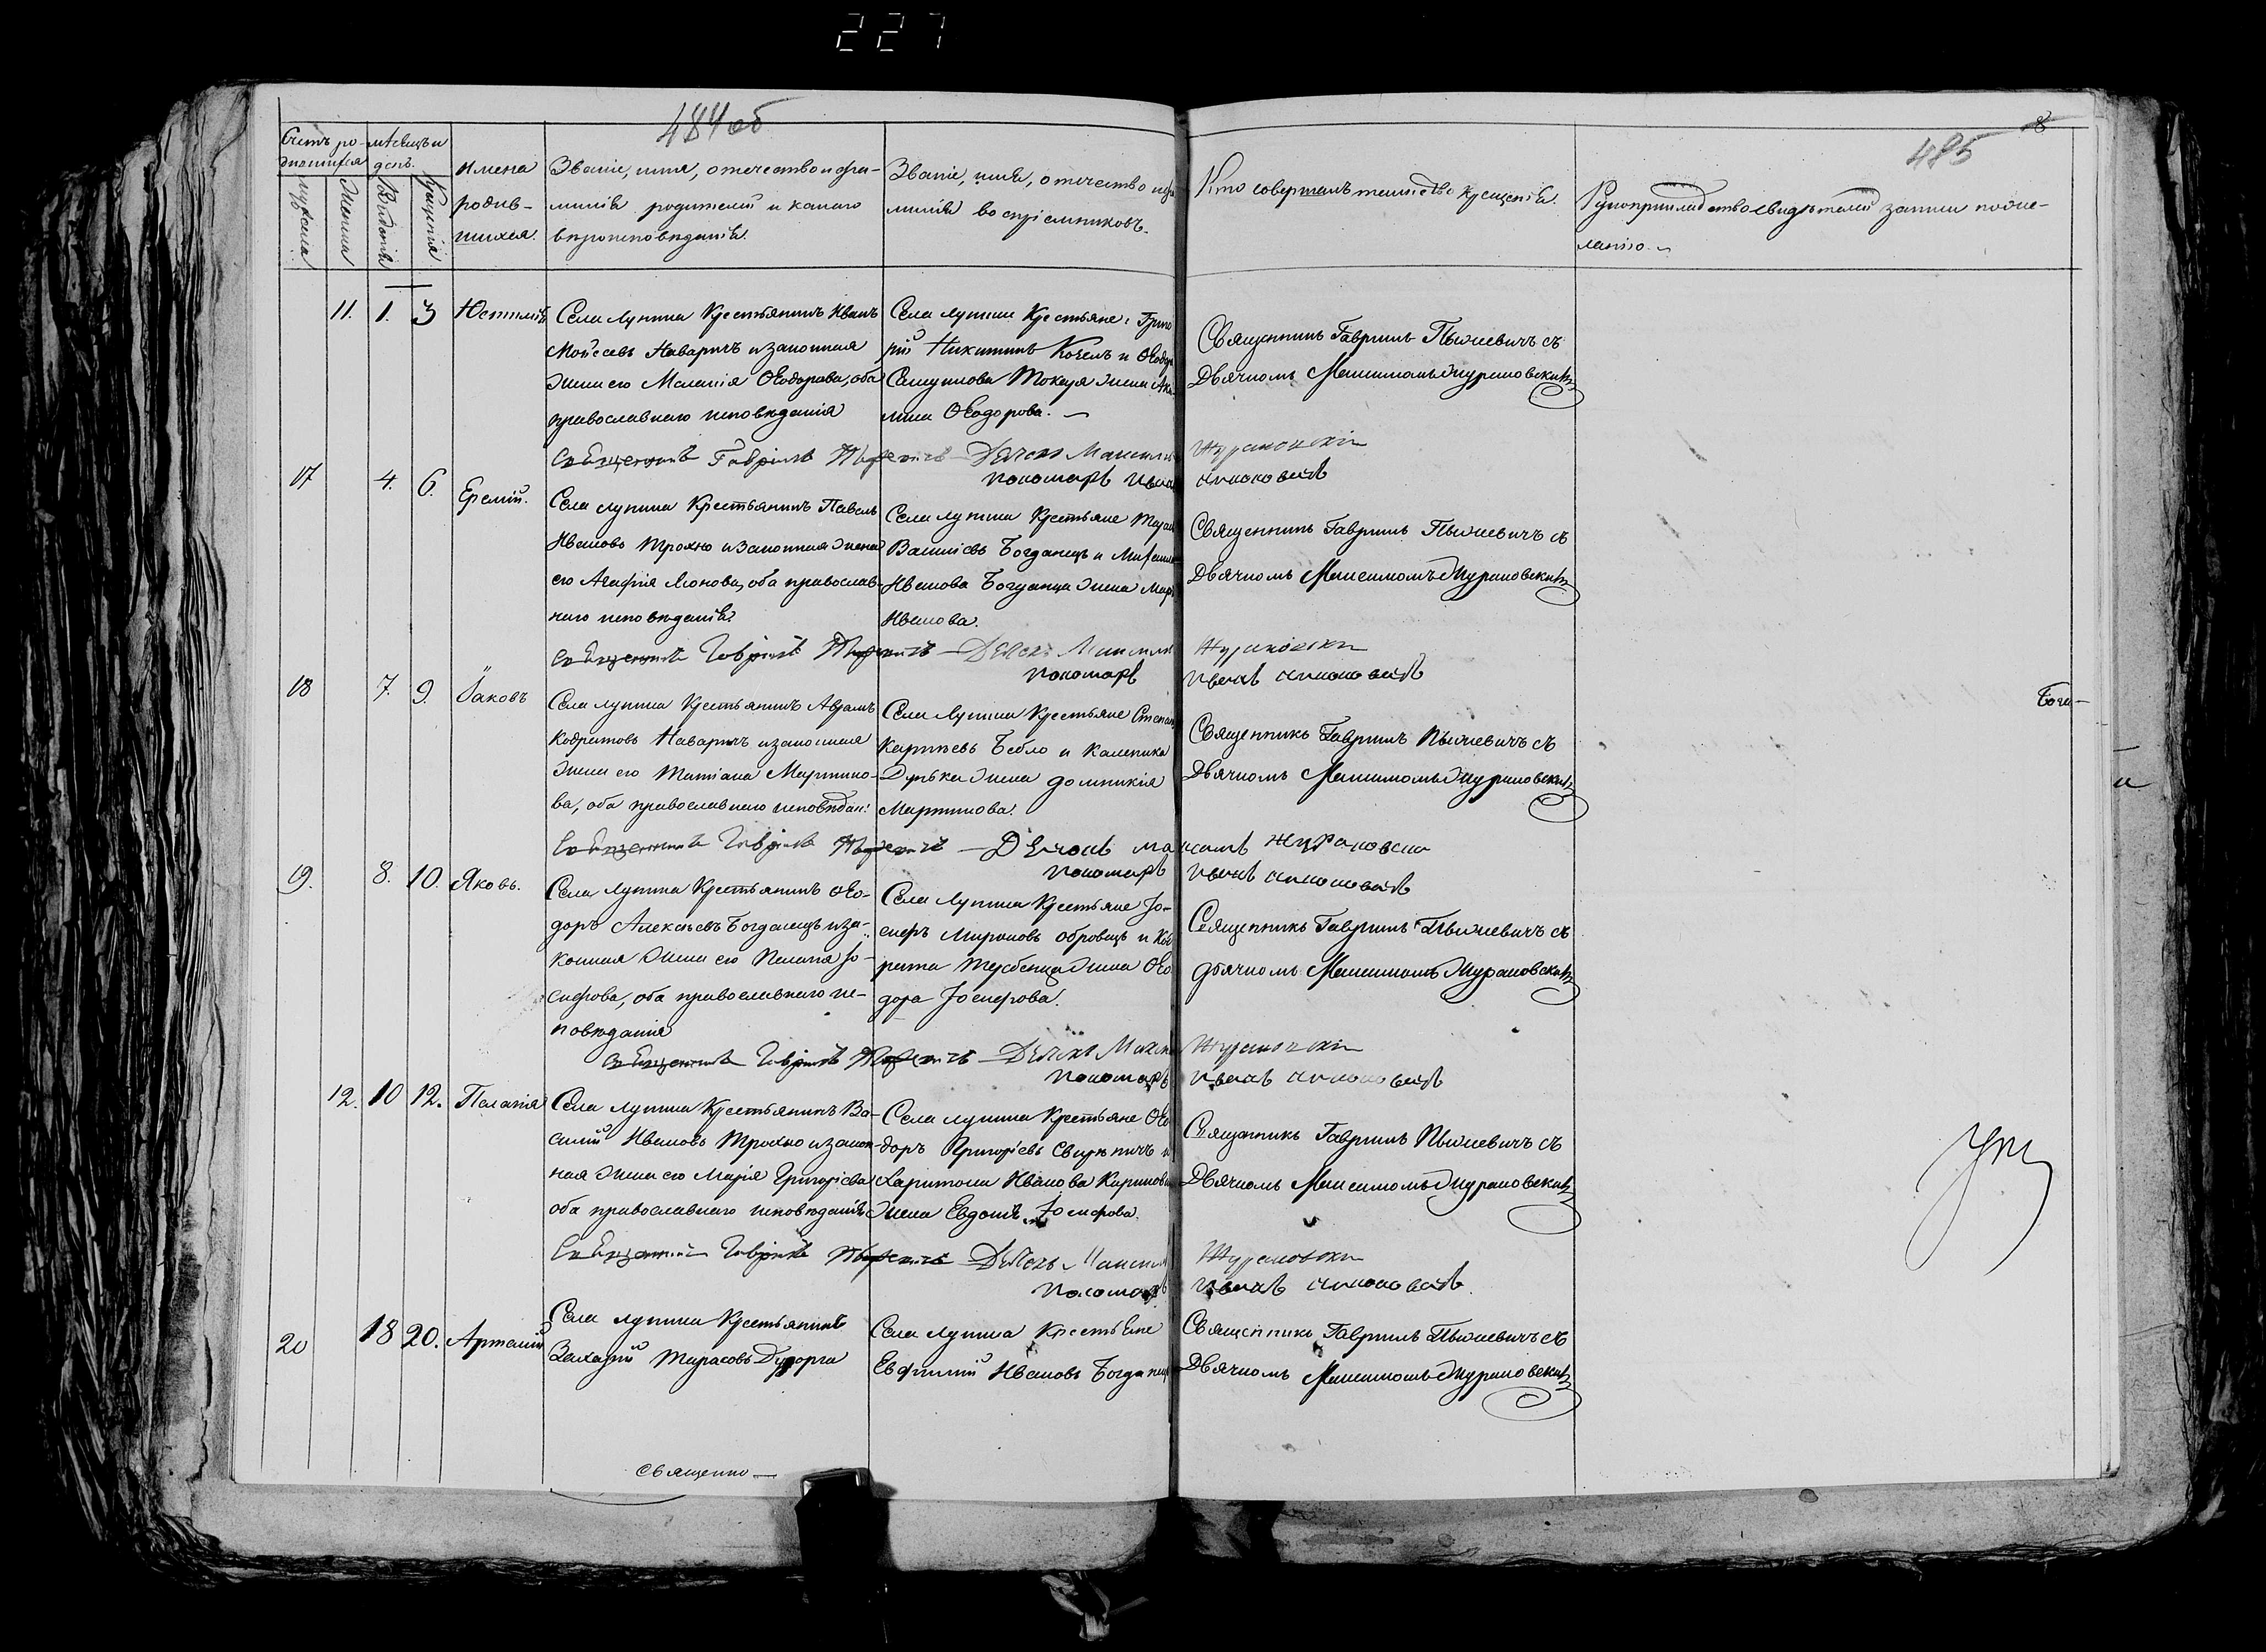 227
484 об
485
8
Счетъ ро-
дившихся
мѣсяцъ и
день.
мужеска
женска
Рожденія
Крещенія
Имена
родив-
шихся.
Званіе, имя, отечество и фа-
милія родителей и какого
вѣроисповѣданія.
Званіе, имя, отечество и фа
милія воспріемниковъ.
Кто совершалъ таинство крещенія.
Рукоприкладство свидѣтелей записи по же-
ланію.
11. 1. 3 Юстинія
Села Лупина Крестьянинъ Иванъ
Моисеевъ Наваричъ и законная
жена его Маланія Ѳеодорова, оба
православнаго исповѣданія
Села Лупина Крестьяне: Григо
рій Никитинъ Козелъ и Ѳеодор
Самуилова Токаря жена Аку
лина Ѳеодорова.
Священникъ Гавріилъ Пыжевичъ съ
Дьячкомъ Максимомъ Жураковскимъ
Священникъ Гавріилъ Пыжевичъ Дьячокъ Максимъ Жураковскій
Пономарь Иванъ
17 4. 6. Еремій.
Села Лупина Крестьянинъ Павелъ
Ивановъ Трохно и Законная жена
его Агафія Яконова, оба православ-
наго исповѣданія
Села Лупина Крестьяне
Василіевъ Богданецъ и
Иванова Богданца жена Мар
Иванова.
Священникъ Гавріилъ Пыжевичъ съ
Дьячкомъ Максимомъ Жураковскимъ
Священникъ Гавріилъ Пыжевичъ Дьячокъ Максимъ Жураковскій
Пономарь Иванъ
18 7. 9. Іаковъ
Села Лупина Крестьянинъ Аврамъ
Кодратовъ Наваричъ и законная
жена его Татіана Мартино-
ва, оба православнаго исповѣдан:
Села Лупина Крестьяне Степанъ
Карпѣевъ Бебло и Каленика
жена Домникія
Мартинова.
Священникъ Гавріилъ Пыжевичъ съ
Дьячкомъ Максимомъ Жураковскимъ
Священникъ Гавріилъ Пыжевичъ Дьячокъ Максимъ Жураковскій
Пономарь Иванъ
19. 8. 10. Яковъ.
Села Лупина Крестьянинъ Ѳео-
доръ Алексѣевъ Богданецъ и за-
конная жена его Пелагія Іо-
сифова, оба православнаго ис-
повѣданія
Села Лупина Крестьяне Іо-
сифъ Мироновъ Обровецъ и Код
рата жена Ѳео
дора Іосифова.
Священникъ Гавріилъ Пыжевичъ съ
дьячкомъ Максимомъ Жураковскимъ
Священникъ Гавріилъ Пыжевичъ Дьячокъ Максимъ Жураковскій
Пономарь Иванъ
12. 10 12. Пелагія
Села Лупина Крестьянинъ Ва-
силій Ивановъ Трохно и закон-
ная жена его Марія Григоріева
оба православнаго исповѣданія
Села Лупина Крестьяне Ѳео
доръ Григорьевъ Свирепичъ и
Харитона Иванова
жена Евдокія Іосифова.
Священникъ Гавріилъ Пыжевичъ съ
Дьячкомъ Максимомъ Жураковскимъ
Священникъ Гавріилъ Пыжевичъ Дьячокъ Максимъ Жураковскій
Пономарь Иванъ
20 18 20. Артемій
Села Лупина Крестьянинъ
Захарій Тарасовъ
Села Лупина Крестьяне
Евфимій Ивановъ Богданецъ
Священникъ Гавріилъ Пыжевичъ съ
Дьячкомъ Максимомъ Жураковскимъ
Священно